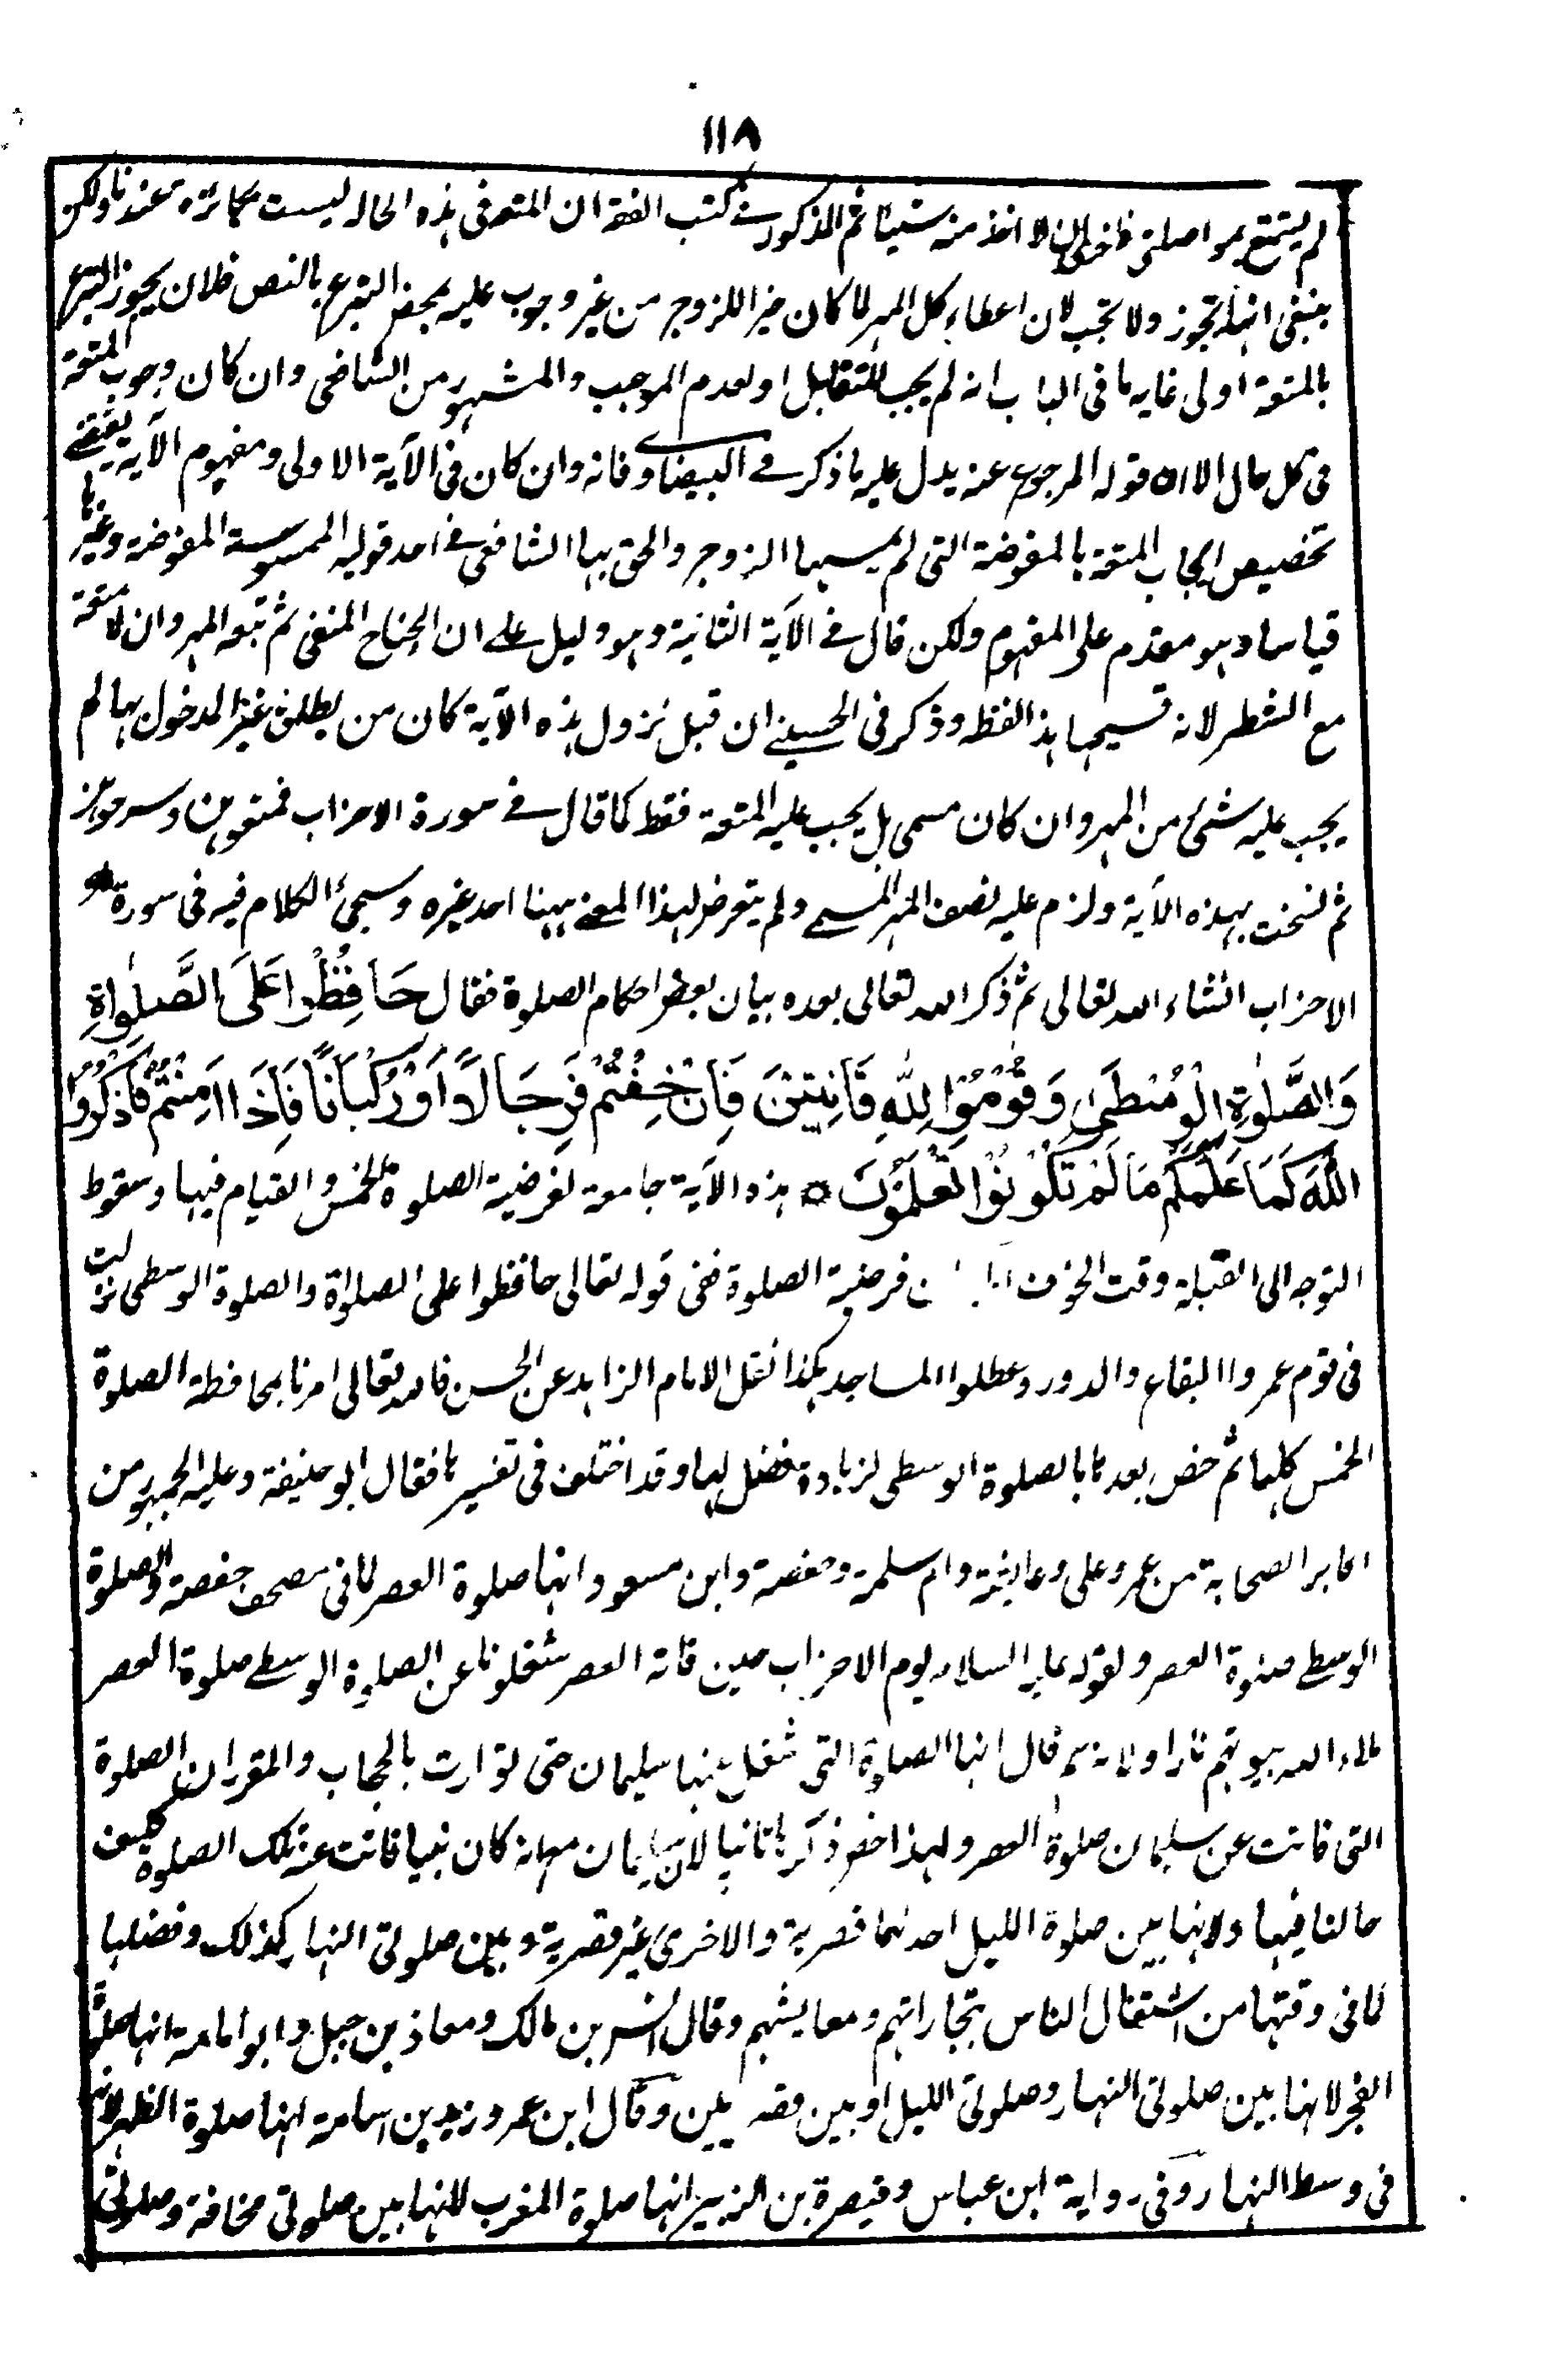 ١١٨
لم يستمتع بمواصلتى فاخلى ان لا اخذ منه شيئا ثم المذكور فى كتب الفقه ان المتعة فى هذه الحالة ليست بجائزة عندنا ولكن
ينبغى انها تجوز ولا تجب لان اعطاء كل المهر لما كان خيرا للزوج من غير وجوب عليه بمحض التبرع بالنص فلان يجوز التبرع
بالمتعة اولى غاية ما فى الباب انه لم يجب للتقابل او لعدم الموجب والمشهور من الشافعى وان كان وجوب المتعة
فى كل حال الا ان قوله المرجوع عنه يدل عليه ما ذكر فى البيضاوى فانه وان كان فى الآية الاولى ومفهوم الآية يقتضى
تخصيص ايجاب المتعة بالمفوضة التى لم يمسها الزوج والحق بها الشافعى فى احد قوليه الممسوسة المفوضة وغيرها
قياسا وهو مقدم على المفهوم ولكن قال فى الآية الثانية وهو دليل على ان الجناح المنفى ثم تبعة المهر وان لا متعة
مع الشطر لانه قسيمها هذا لفظه وذكر فى الحسينى ان قبل نزول هذه الآية كان من يطلق غير المدخول بها لم
يجب عليه شئ من المهر وان كان مسمى بل يجب عليه المتعة فقط كما قال فى سورة الاحزاب فمتعوهن وسرحوهن
ثم نسخت بهذه الآية ولزم عليه نصف المهر المسمى ولم يتعرض لهذا المعنى ههنا احد غيره وسيجئ الكلام فيه فى سورة
الاحزاب انشاء الله تعالى ثم ذكر الله تعالى بعده بيان بعض احكام الصلوة فقال حَافِظُوْا عَلَى الصَّلَوٰاةِ
وَالصَّلٰوةِ الْوُسْطٰى وَقُوْمُوْا لِلّٰهِ قَانِتِيْنَ فَاِنْ خِفْتُمْ فَرِجَالًا اَوْ رُكْبَانًا فَاِذَا اَمِنْتُمْ فَاذْكُرُوا
اللّٰهَ كَمَا عَلَّمَكُمْ مَا لَمْ تَكُوْنُوْا تَعْلَمُوْنَ ۝ هذه الآية جامعة لفرضية الصلوة الخمس والقيام فيها وسقوط
التوجه الى القبلة وقت الخوف فرضية الصلوة ففى قوله تعالى حافظوا على الصلواة والصلوة الوسطى نزلت
فى قوم عمروا البقاع والدور وعطلوا المساجد هكذا نقل الامام الزاهد عن الحسن فالله تعالى امرنا بمحافظة الصلوة
الخمس كلها ثم خص بعدها بالصلوة الوسطى لزيادة فضل لها وقد اختلف فى تفسيرها فقال ابو حنيفة وعليه الجمهور من
اكابر الصحابة من عمر وعلى وعائشة وام سلمة وحفصة وابن مسعود انها صلوة العصر لما فى مصحف حفصة والصلوة
الوسطى صلوة العصر ولقوله عليه السلام يوم الاحزاب حين فاته العصر شغلونا عن الصلوة الوسطى صلوة العصر
ملاء الله بيوتهم نارا ولانه عم قال انها الصلوة التى شغل عنها سليمان حتى توارت بالحجاب والمقرران الصلوة
التى فاتت عن سليمان صلوة العصر ولهذا خص ذكرها ثانيا لان سليمان مع انه كان نبيا فاتت عنه تلك الصلوة فكيف
حالنا فيها ولانها بين صلوة الليل احدهما قصرية والاخرى غير قصرية وبين صلوتى النهار كذلك وفضلها
لما فى وقتها من اشتغال الناس بتجاراتهم ومعايشهم وقال انس بن مالك ومعاذ بن جبل وابو امامة انها صلوة
الفجر لانها بين صلوتى النهار وصلوتى الليل او بين وقال ابن عمر وزيد بن اسامة انها صلوة الظهر لانها
فى وسط النهار وفى رواية ابن عباس وقبيصرة بن الزبير انها صلوة المغرب لانها بين صلوتى مخافة وصلوتى